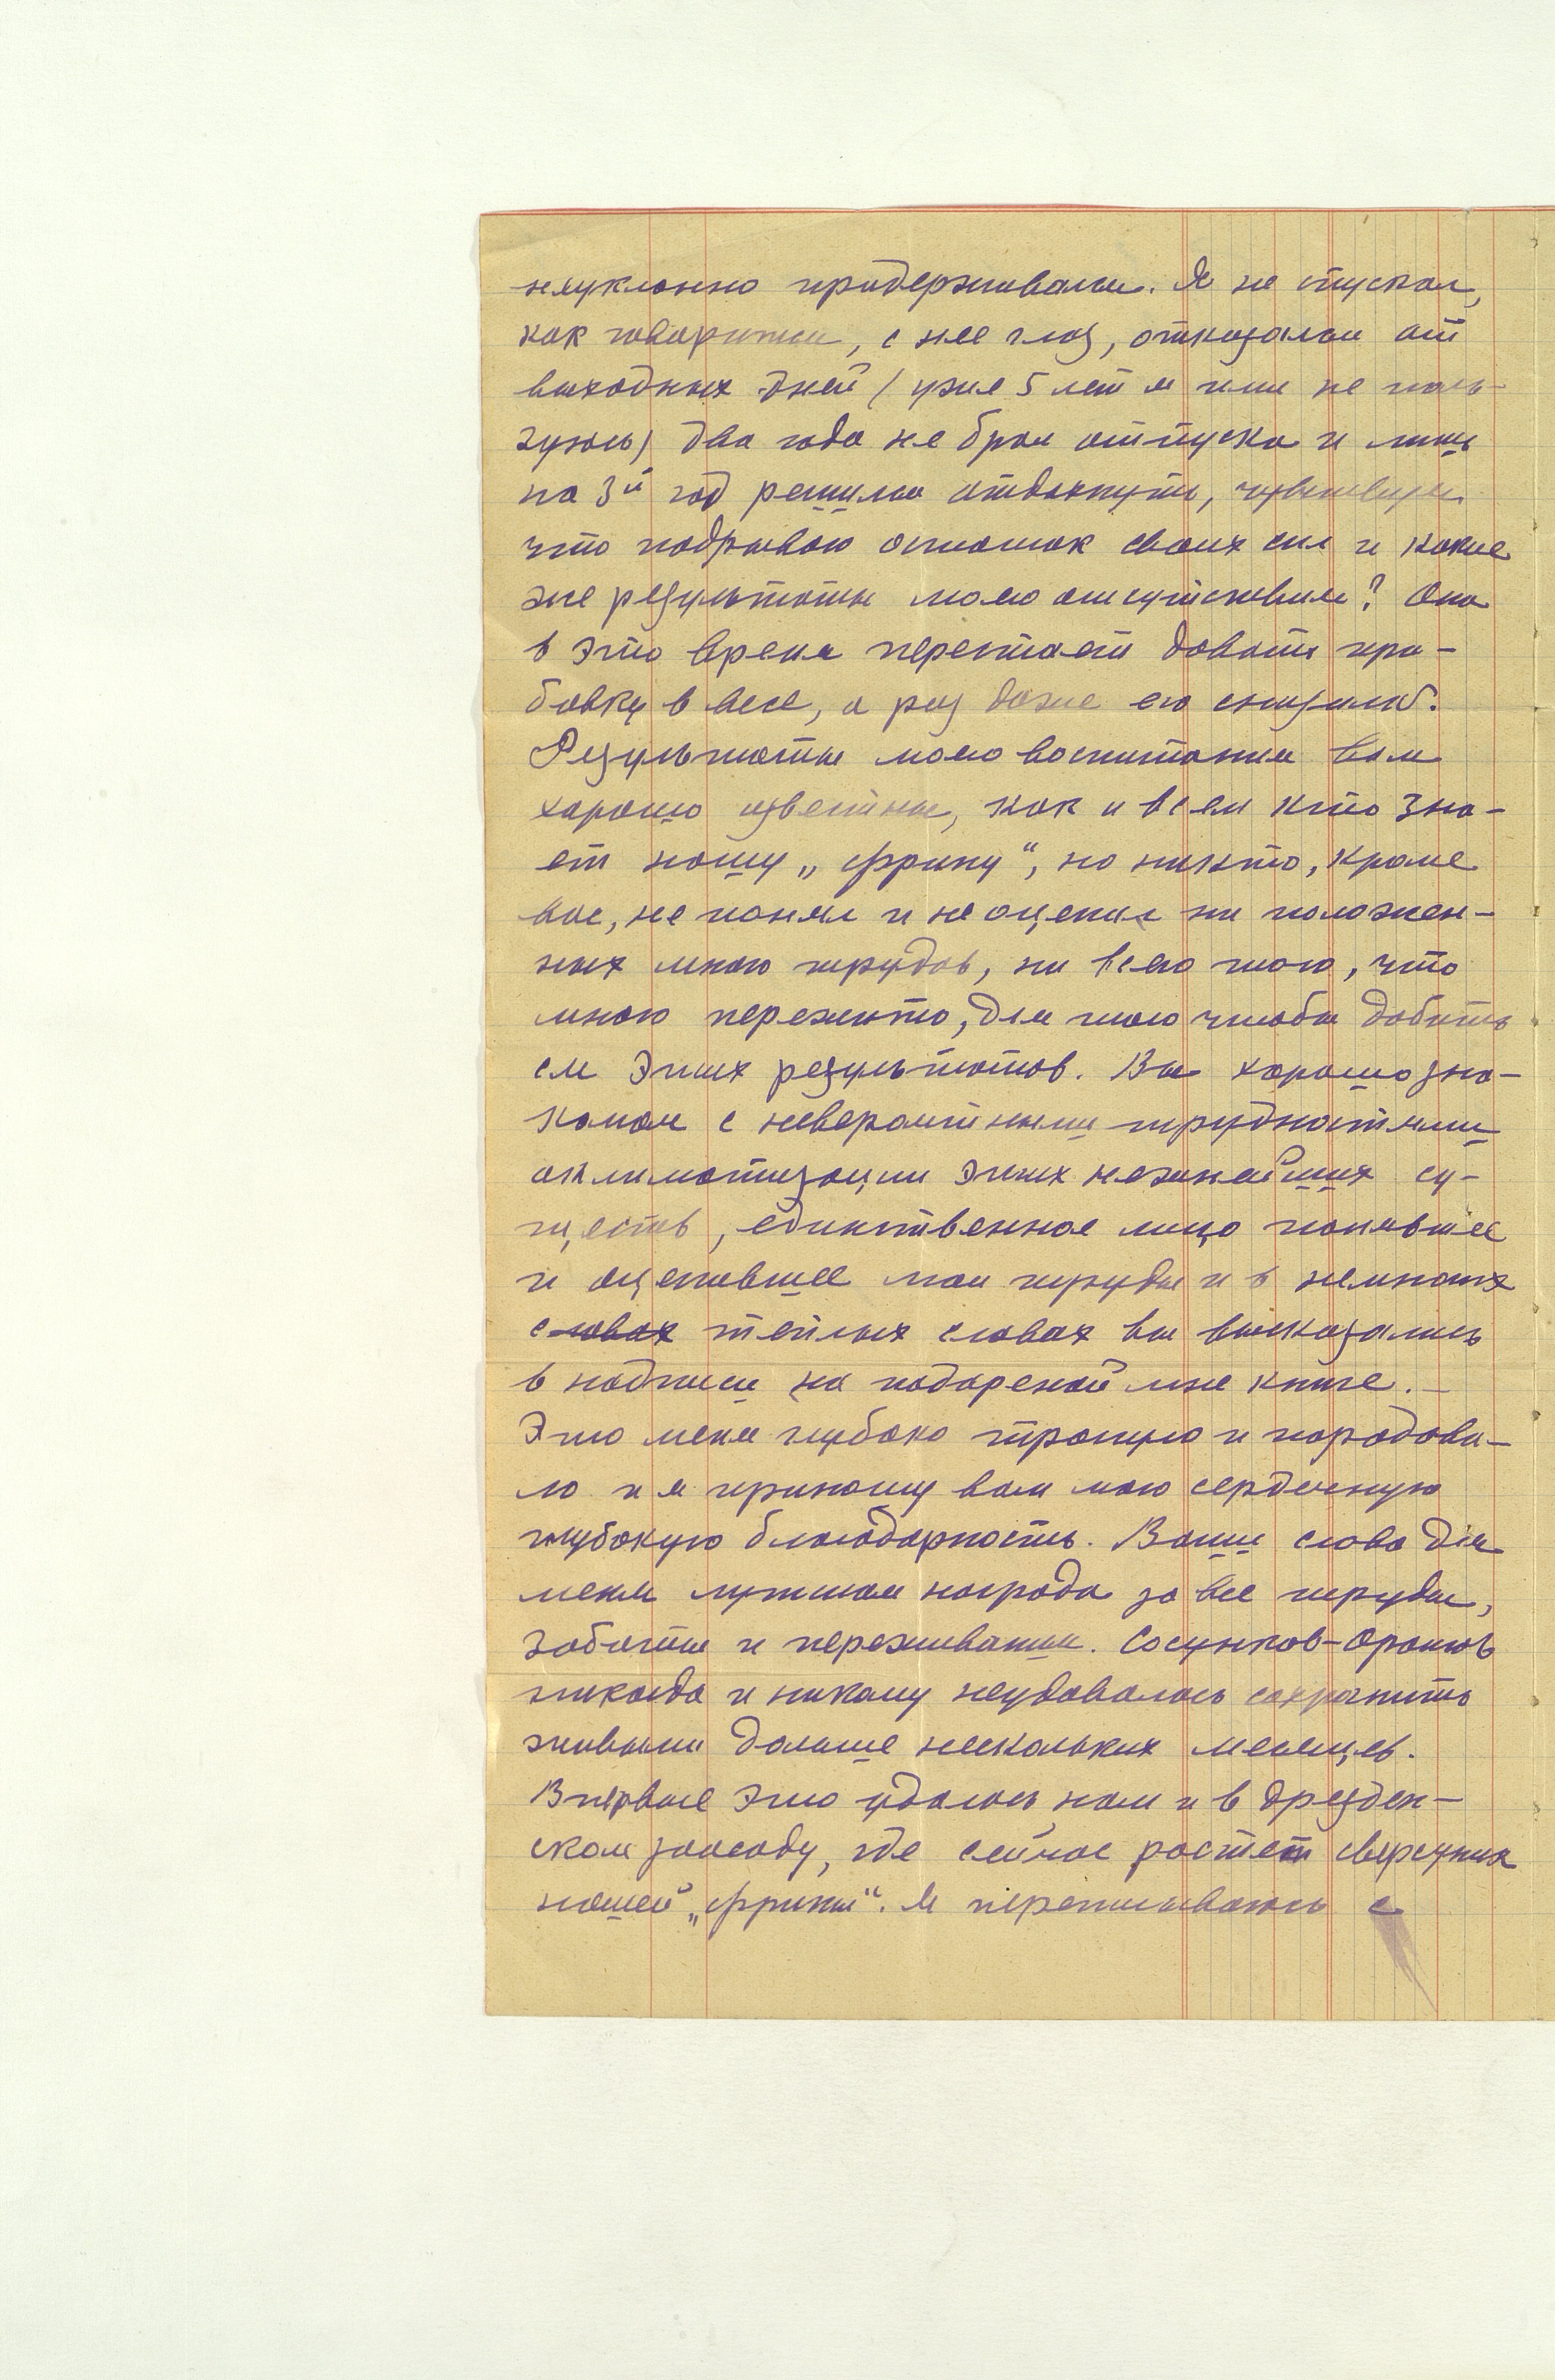 неуклонно придерживался. Я не спускал,
как говорится, с нее глаз, отказался от
выходных дней (уже 5 лет я ими не поль-
зуюсь) два года не брал отпуска и лишь
на 3й год решился отдохнуть, чувствуя
что подрываю остаток своих сил и какие
же результаты моего отсутствия? Она
в это время перестает давать при-
бавку в весе, а раз даже его снизила.
Результаты моего воспитания вам
хорошо известны, как и всем кто зна-
ет нашу „Фрину“, но никто, кроме
вас, не понял и не оценил ни положен-
ных мною трудов, ни всего того, что
мною пережито, для того чтобы добить
ся этих результатов. Вы хорошо зна-
комы с невероятными трудностями
акклиматизации этих нежнейших су-
ществ, единственное лицо понявшее
и оценившее мои труды и в немногих
словах теплых словах вы высказались
в надписи на подареной мне книге. –
Это меня глубоко тронуло и порадова-
ло и я приношу вам мою сердечную
глубокую благодарность. Ваши слова для
меня лучшая награда за все труды,
заботы и переживания. Сосунков-орангов
никогда и никому неудавалось сохранить
живыми дольше нескольких месяцев.
Впервые это удалось нам и в Дрезден-
ском зоосаду, где сейчас растет сверстник
нашей „Фрины“. Я переписываюсь с